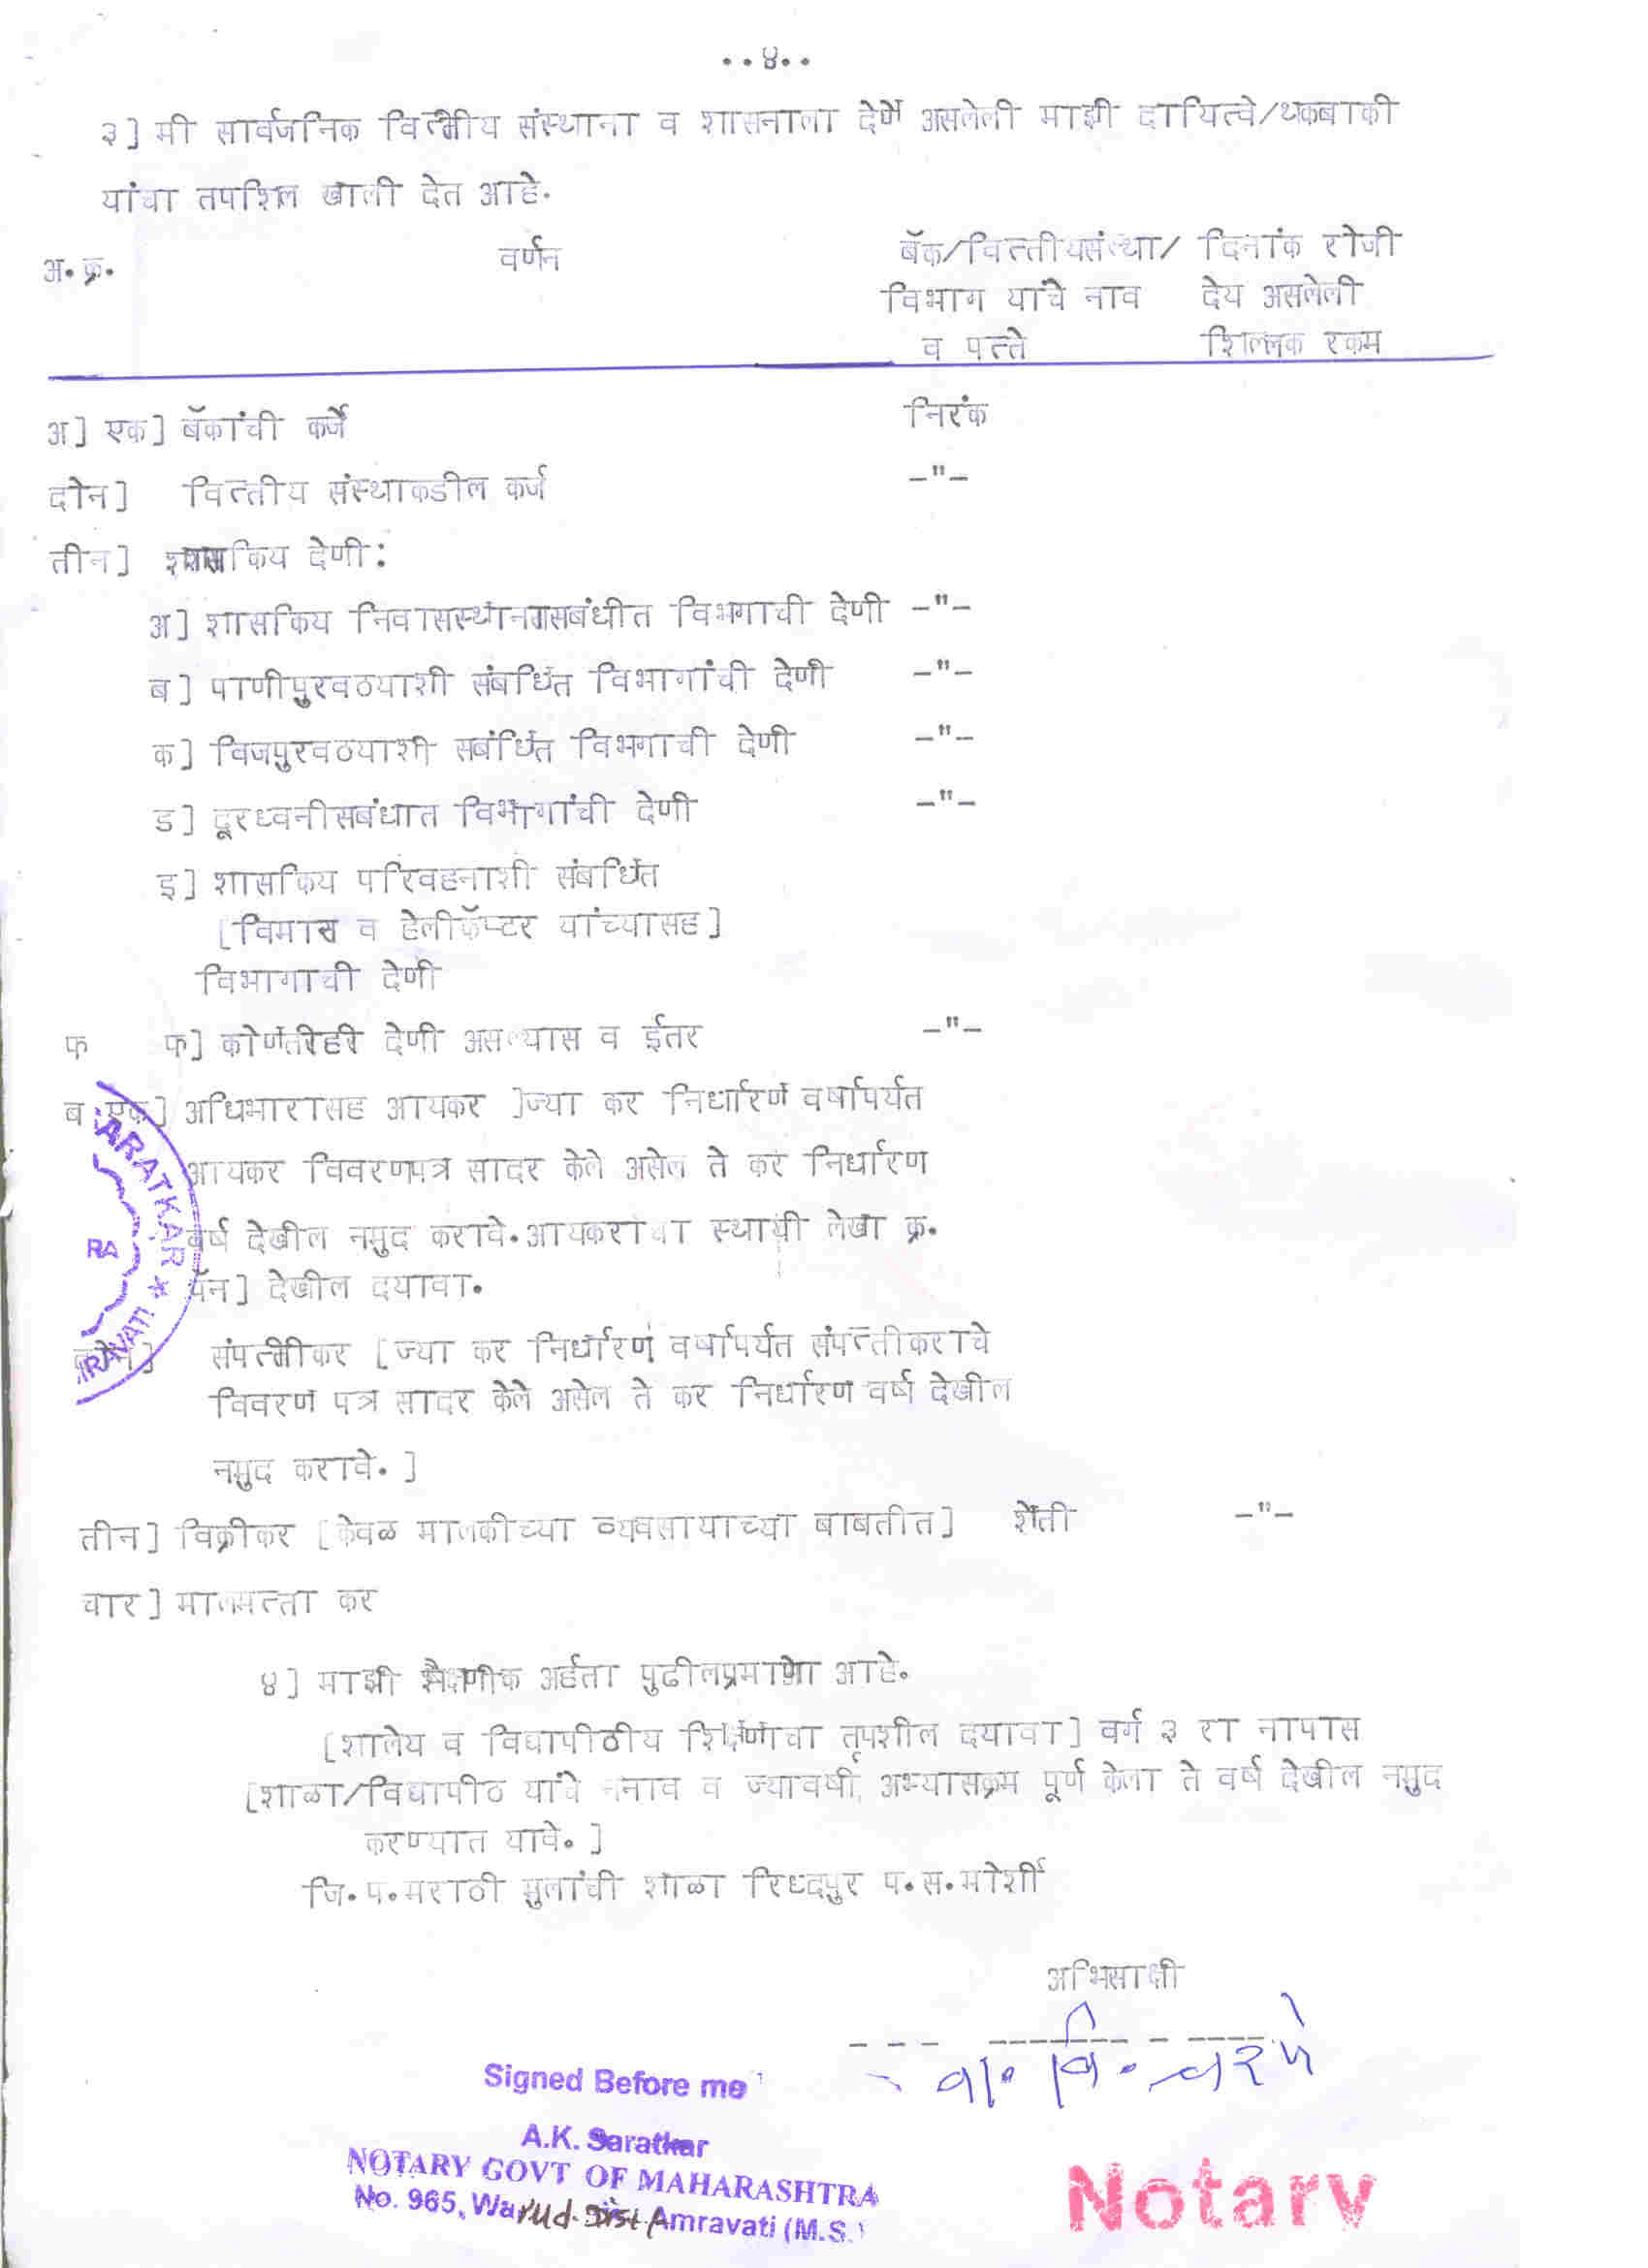 ..४..
३] मी सार्वजनिक वित्तीय संस्थाना व शासनाला देणे असलेली माझी दायित्वे/थकबाकी
यांचा तपशिल खाली देत आहे.
अ.क्र. वर्णन बॅक/वित्तीयसंस्था/ दिनांक रोजी
विभाग यांचे नाव देय असलेली
व पत्ते शिल्लक रकम
अ] एक] बॅकांची कर्जे निरंक
दोन] वित्तीय संस्थाकडील कर्ज -"-
तीन] शासकिय देणी:
अ] शासकिय निवासस्थानासबंधीत विभगाची देणी -"-
ब] पाणीपुरवठयाशी संबधित विभागांची देणी -"-
क] विजपुरवठयाशी सबंधित विभगाची देणी -"-
ड] दूरध्वनीसबंधात विभागांची देणी -"-
इ] शासकिय परिवहनाशी संबधित
[विमान व हेलीकॅप्टर यांच्यासह]
विभागाची देणी
फ फ] कोणतीही देणी असल्यास व ईतर -"-
ब एक] अधिभारासह आयकर ]ज्या कर निर्धारण वर्षापर्यत
आयकर विवरणपत्र सादर केले असेल ते कर निर्धारण
वर्ष देखील नमुद करावे.आयकराचा स्थायी लेखा क्र.
पॅन] देखील दयावा.
दोन] संपत्तीकर [ज्या कर निर्धारण वर्षापर्यत संपत्तीकराचे
विवरण पत्र सादर केले असेल ते कर निर्धारण वर्ष देखील
नमुद करावे.]
तीन] विक्रीकर [केवळ मालकीच्या व्यवसायाच्या बाबतीत] शेती -"-
चार] मालमत्ता कर
४] माझी शैक्षणीक अर्हता पुढीलप्रमाणे आहे.
[शालेय व विद्यापीठीय शिक्षणाचा तपशील दयावा] वर्ग ३ रा नापास
[शाळा/विद्यापीठ यांचे नाव व ज्यावर्षी अभ्यासक्रम पूर्ण केला ते वर्ष देखील नमुद
करण्यात यावे.]
जि.प.मराठी मुलांची शाळा रिध्दपुर प.स.मोर्शी
अभिसाक्षी
Signed Before me
A.K. Saratkar
NOTARY GOVT OF MAHARASHTRA
No. 965, Warud. Dist Amravati (M.S.)
Notary
ARATKAR ★
RA
RAVATI